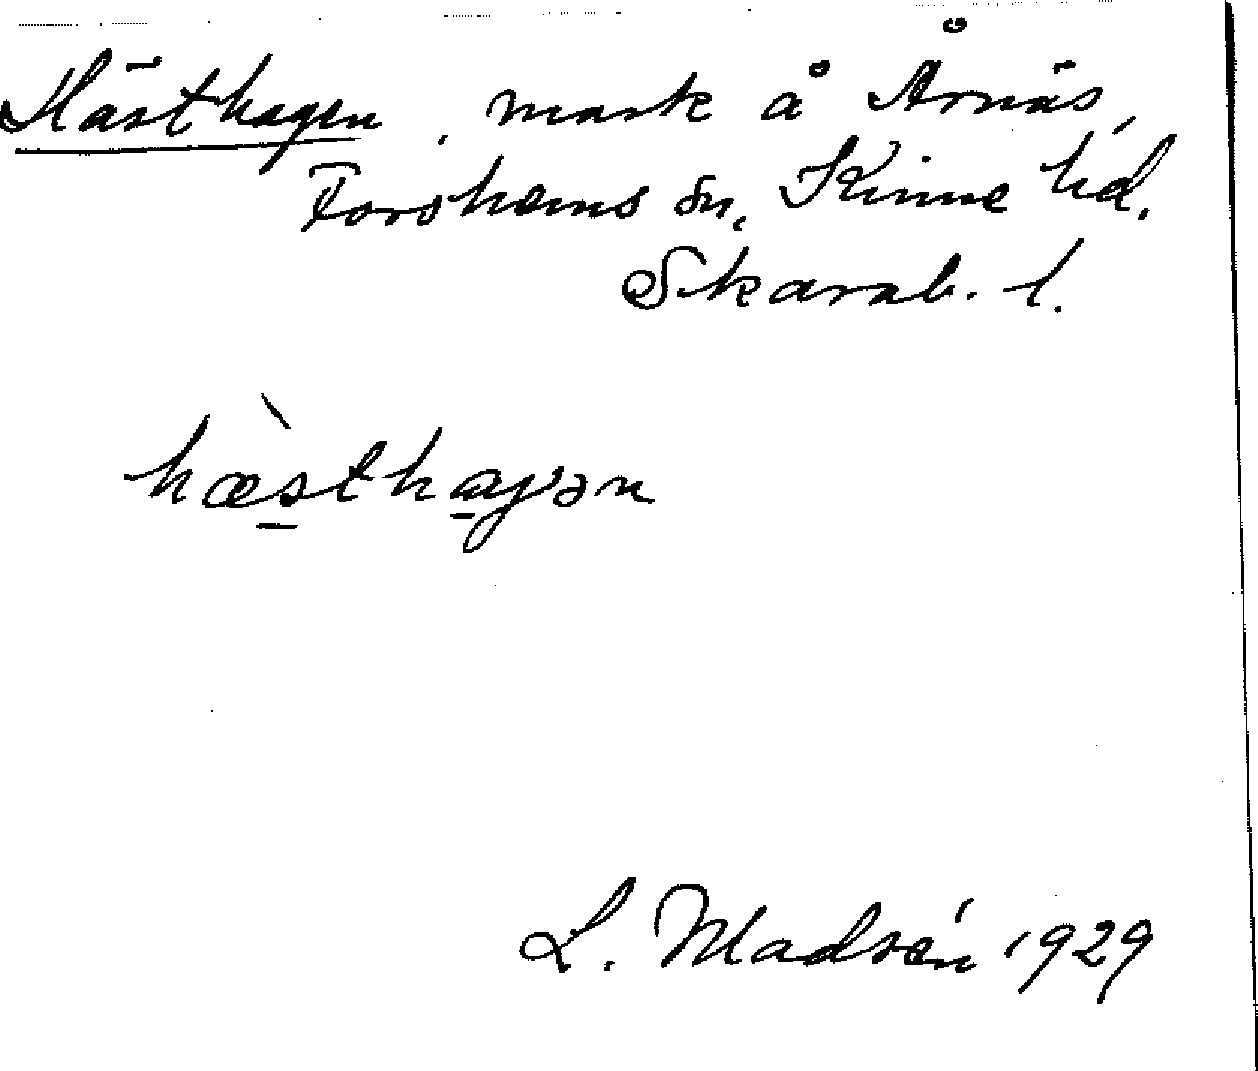 Hästhagen, mark å Årnäs,
Forshems sn, Kinne hd,
Skarab. l.
hæ̀sthaγən
L. Madsén 1929